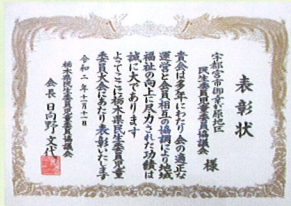 表彰状
宇都宮市御幸ヶ原地区
民生委員児童委員協議会 様
貴会は多年にわたり会の適正な
運営と会員相互の協調により地域
福祉の向上に尽力された功績は
誠に大であります
よってここに栃木県民生委員児童
委員大会にあたり表彰いたします
令和二年十一月十一日
栃木県民生委員児童委員協議会
会長 日向野文代